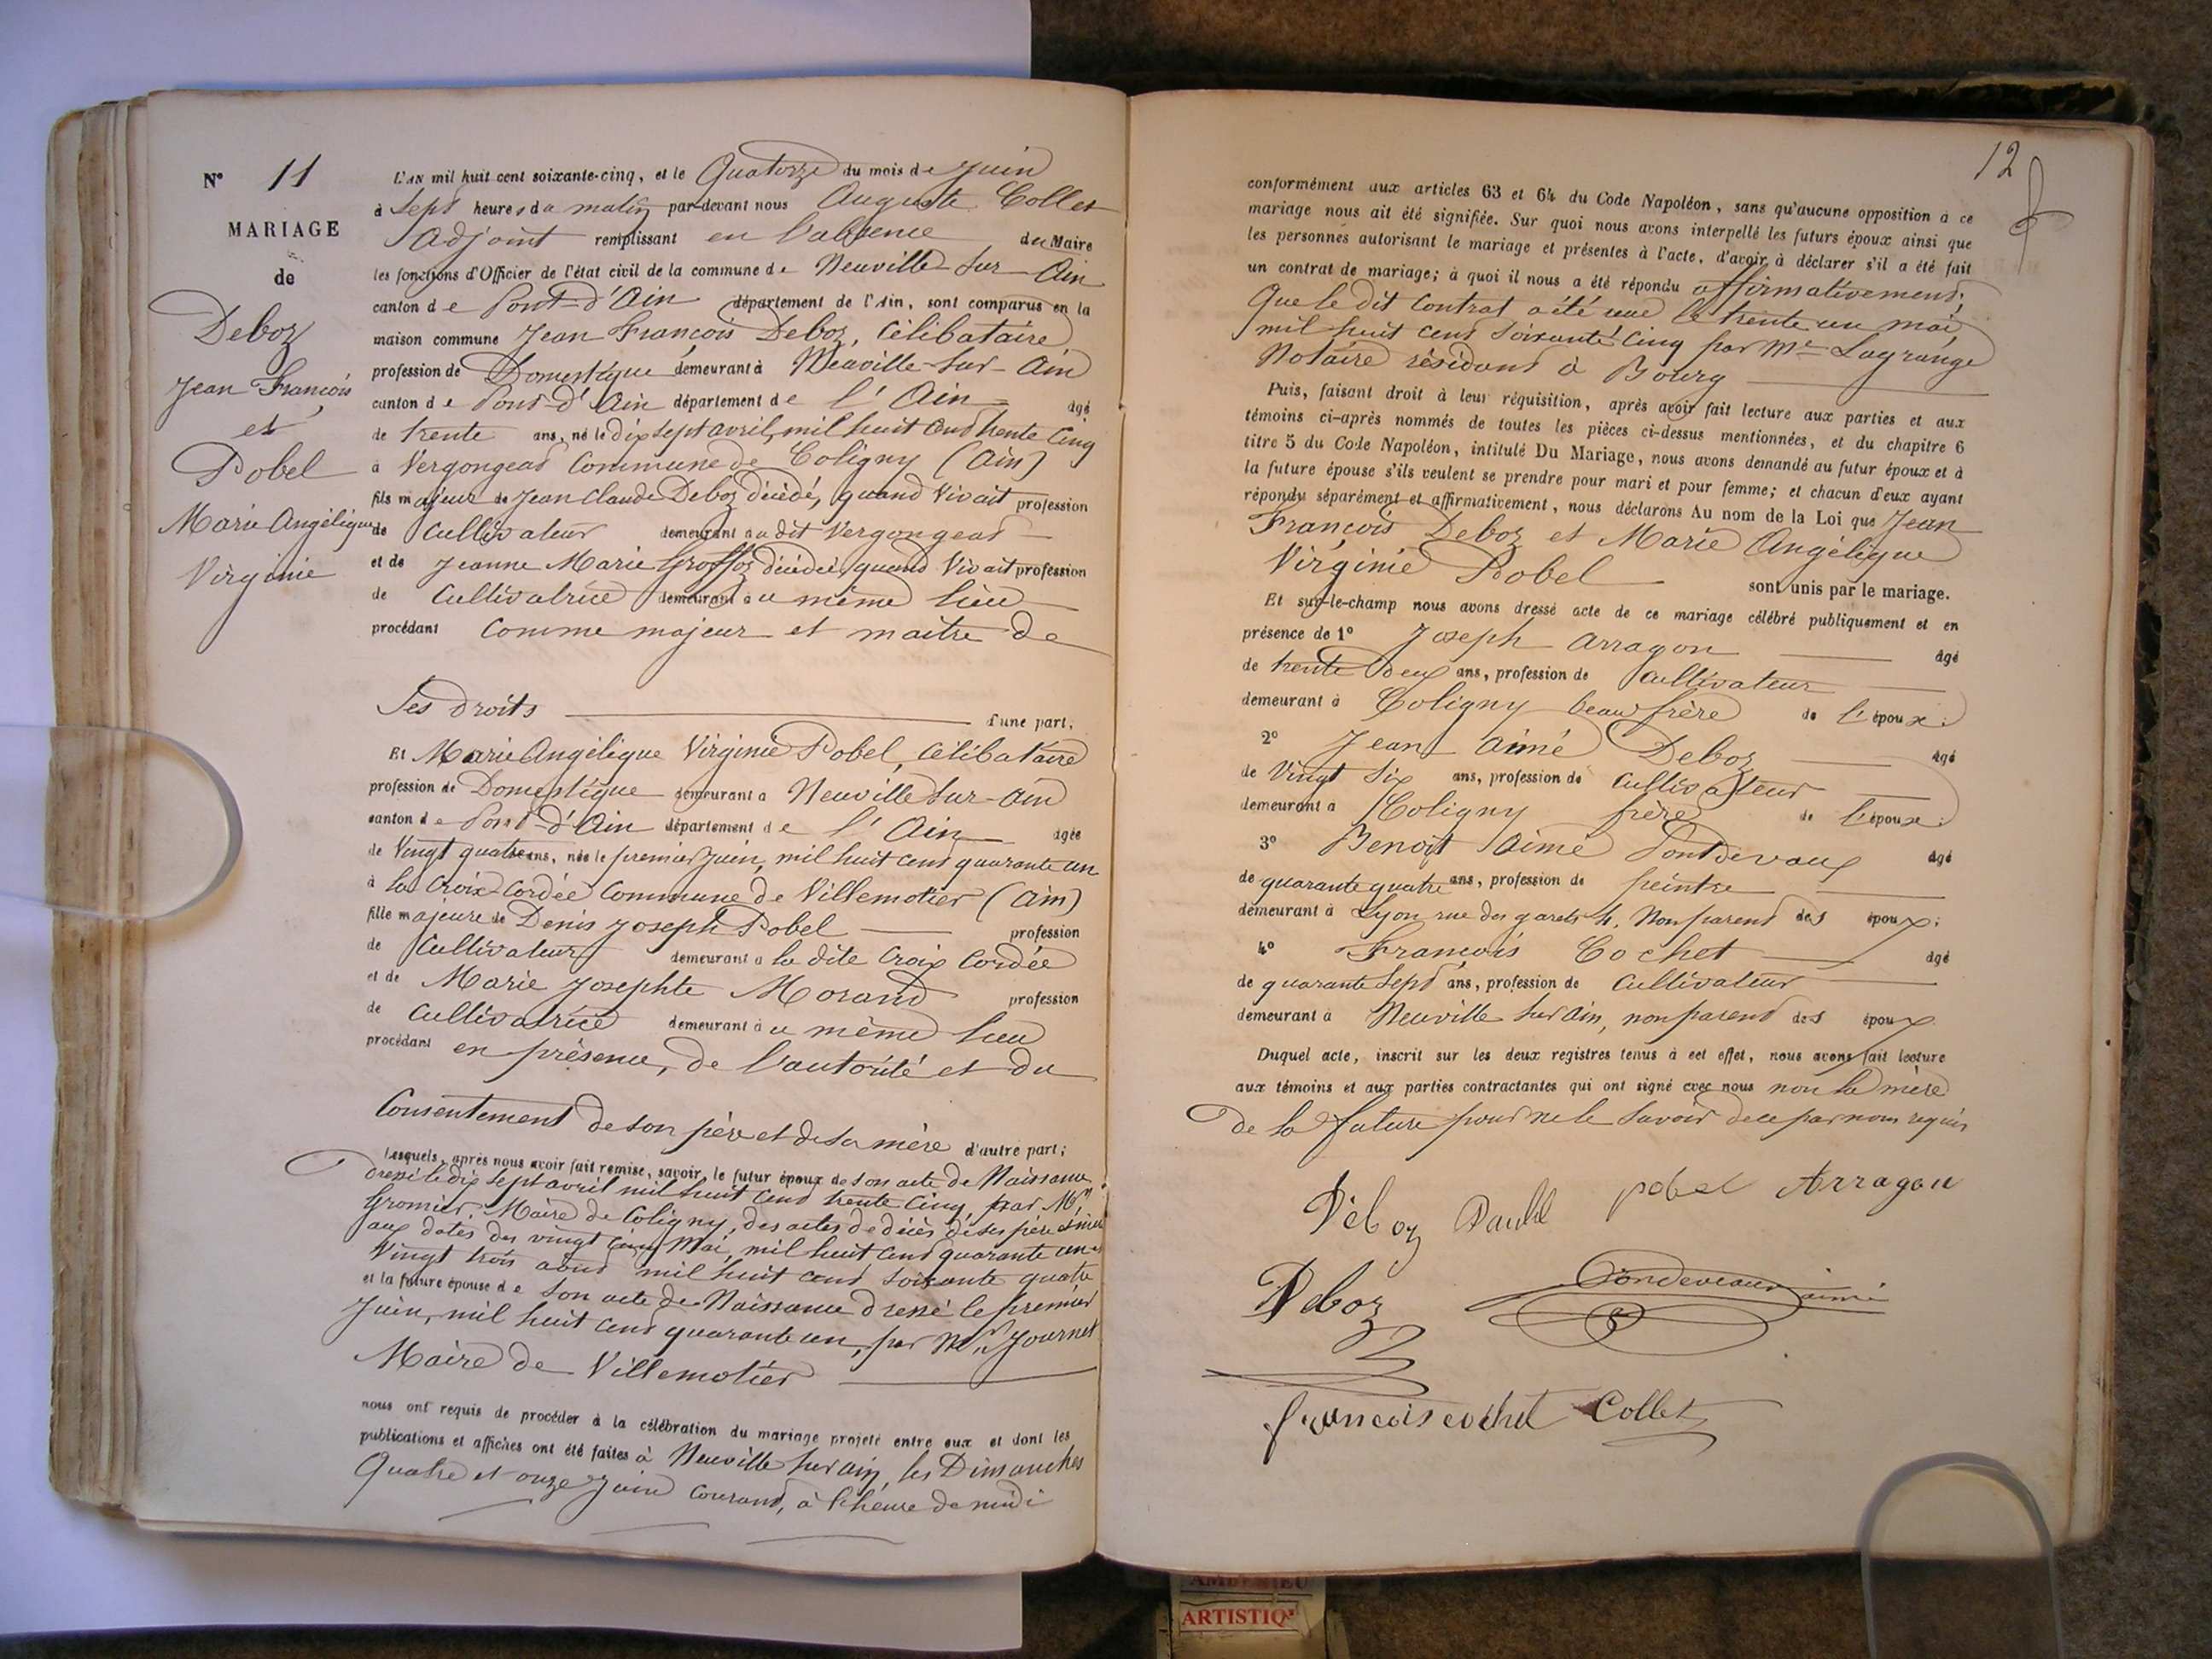 N° 11
MARIAGE
de
Deboz
Jean François
et
Pobel
Marie Angélique
Virginie
L'AN mil huit cent soixante-cinq, et le Quatorze du mois de Juin
à Sept heures du matin par-devant nous Auguste Collet
Adjoint remplissant en l'absence du Maire
les fonctions d'Officier de l'état civil de la commune de Neuville sur Ain
canton de Pont-d'Ain département de l'Ain, sont comparus en la
maison commune Jean François Deboz, Célibataire
profession de Domestique demeurant à Neuville-sur-Ain
canton de Pont-d'Ain département de l'Ain âgé
de trente ans, né le dix sept avril, mil huit cent trente cinq
à Vergongeas Commune de Coligny (Ain)
fils majeur de Jean Claude Deboz décédé, quand vivait profession
de Cultivateur demeurant au dit Vergongeas
et de Jeanne Marie Groffoz décédée, quand vivait profession
de Cultivatrice demeurant au même lieu
procédant comme majeur et maitre de
Ses droits d'une part,
Et Marie Angélique Virginie Pobel, Célibataire
profession de Domestique demeurant à Neuville sur-Ain
canton de Pont-d'Ain département de l'Ain âgée
de Vingt quatre ans, née le premier Juin, mil huit cent quarante un
à la Croix-Cordée Commune de Villemotier (Ain)
fille majeure de Denis Joseph Pobel profession
de Cultivateur demeurant à la dite Croix Cordée
et de Marie Josephte Morand profession
de Cultivatrice demeurant au même lieu
procédant en présence, de l'autorité et du
Consentement de son père et de sa mère d'autre part;
Lesquels, après nous avoir fait remise, savoir, le futur époux de son acte de Naissance
dressé le dix sept avril mil huit cent trente cinq, par Mr
Gromier, Maire de Coligny, des actes de décès de ses père et mère
aux dates des vingt cinq Mai, mil huit cent quarante un et
Vingt trois août mil huit cent soixante quatre
et la future épouse de son acte de Naissance dressé le premier
Juin, mil huit cent quarante un, par Mr Journet
Maire de Villemotier
nous ont requis de procéder à la célébration du mariage projeté entre eux et dont les
publications et affiches ont été faites à Neuville sur Ain, les Dimanches
Quatre et onze Juin courant, à l'heure de midi
12
conformément aux articles 63 et 64 du Code Napoléon, sans qu'aucune opposition à ce
mariage nous ait été signifiée. Sur quoi nous avons interpellé les futurs époux ainsi que
les personnes autorisant le mariage et présentes à l'acte, d'avoir à déclarer s'il a été fait
un contrat de mariage; à quoi il nous a été répondu affirmativement;
Que le dit Contrat a été reçu le trente un mai
mil huit cent soixante cinq par Me Lagrange
Notaire résidant à Bourg
Puis, faisant droit à leur réquisition, après avoir fait lecture aux parties et aux
témoins ci-après nommés de toutes les pièces ci-dessus mentionnées, et du chapitre 6
titre 5 du Code Napoléon, intitulé Du Mariage, nous avons demandé au futur époux et à
la future épouse s'ils veulent se prendre pour mari et pour femme; et chacun d'eux ayant
répondu séparément et affirmativement, nous déclarons Au nom de la Loi que Jean
François Deboz et Marie Angélique
Virginie Pobel sont unis par le mariage.
Et sur-le-champ nous avons dressé acte de ce mariage célébré publiquement et en
présence de 1° Joseph Arragon âgé
de trente deux ans, profession de Cultivateur
demeurant à Coligny beau frère de l'époux.
2° Jean Aimé Deboz âgé
de Vingt Six ans, profession de Cultivateur
demeurant à Coligny frère de l'époux.
3° Benoit Aimé Pontdevaux âgé
de quarante quatre ans, profession de peintre
demeurant à Lyon rue des garets 4, Non parent des époux;
4° François Cochet âgé
de quarante Sept ans, profession de Cultivateur
demeurant à Neuville sur Ain, non parent des époux
Duquel acte, inscrit sur les deux registres tenus à cet effet, nous avons fait lecture
aux témoins et aux parties contractantes qui ont signé avec nous non la mère
De la future pour ne le savoir de ce par nous requis
Déboz Paubl pobel Arragon
Deboz Pondeveaux aimé
francois cochet Collet
AMBERIEU
ARTISTIQ